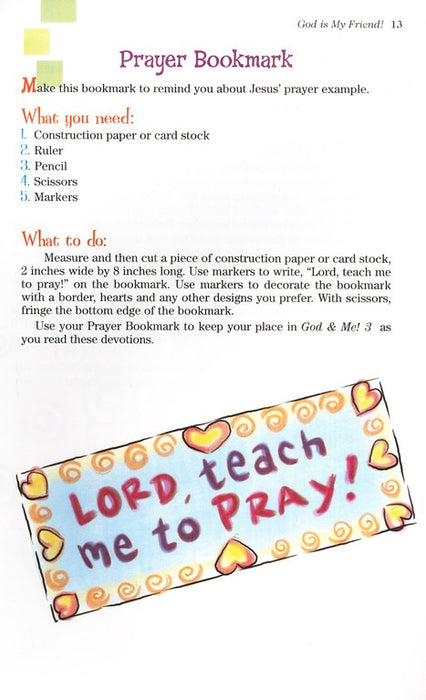 God is My Friend! 13
Prayer Bookmark
Make this bookmark to remind you about Jesus' prayer example.
What you need:
1. Construction paper or card stock
2. Ruler
3. Pencil
4. Scissors
5. Markers
What to do:
Measure and then cut a piece of construction paper or card stock,
2 inches wide by 8 inches long. Use markers to write, “Lord, teach me
to pray!” on the bookmark. Use markers to decorate the bookmark
with a border, hearts and any other designs you prefer. With scissors,
fringe the bottom edge of the bookmark.
Use your Prayer Bookmark to keep your place in God & Me! 3 as
you read these devotions.
LORD, teach
me to PRAY!